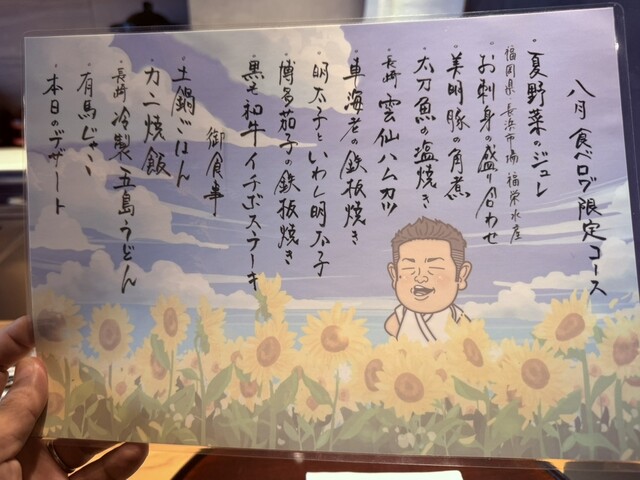 八月 食べログ限定コース
・夏野菜のジュレ
福岡県 長浜市場 福栄水産
・お刺身の盛り合わせ
・美明豚の角煮
・太刀魚の塩焼き
・長崎 雲仙ハムカツ
・車海老の鉄板焼き
・明太子といわし明太子
・博多茄子の鉄板焼き
・黒毛和牛イチボステーキ
御食事
・土鍋ごはん
・カニ焼飯
・長崎 冷製 五島うどん
・有馬じゃこ
・本日のデザート